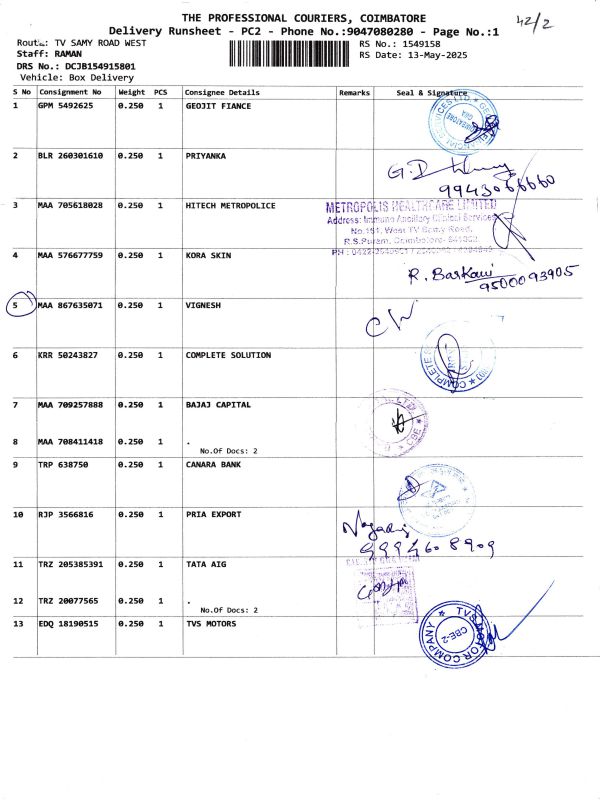 THE PROFESSIONAL COURIERS, COIMBATORE
42/2
Delivery Runsheet - PC2 - Phone No.:9047080280 - Page No.:1
Route: TV SAMY ROAD WEST
RS No.: 1549158
Staff: RAMAN
RS Date: 13-May-2025
DRS No.: DCJB154915801
Vehicle: Box Delivery
S No Consignment No Weight PCS Consignee Details Remarks Seal & Signature
1 GPM 5492625 0.250 1 GEOJIT FIANCE
2 BLR 260301610 0.250 1 PRIYANKA
9943066660
3 MAA 705618028 0.250 1 HITECH METROPOLICE
METROPOLIS HEALTHCARE LIMITED
Address: Immuno Ancillary Clinical Services
No.151, West TV Samy Road,
R.S.Puram, Coimbatore-
4 MAA 576677759 0.250 1 KORA SKIN
R. Baskaw
9500093905
5 MAA 867635071 0.250 1 VIGNESH
6 KRR 50243827 0.250 1 COMPLETE SOLUTION
7 MAA 709257888 0.250 1 BAJAJ CAPITAL
CBE
8 MAA 708411418 0.250 1 .
No.Of Docs: 2
9 TRP 638750 0.250 1 CANARA BANK
10 RJP 3566816 0.250 1 PRIA EXPORT
9994608909
11 TRZ 205385391 0.250 1 TATA AIG
12 TRZ 20077565 0.250 1 .
No.Of Docs: 2
13 EDQ 18190515 0.250 1 TVS MOTORS
TVS MOTOR COMPANY
CBE-2